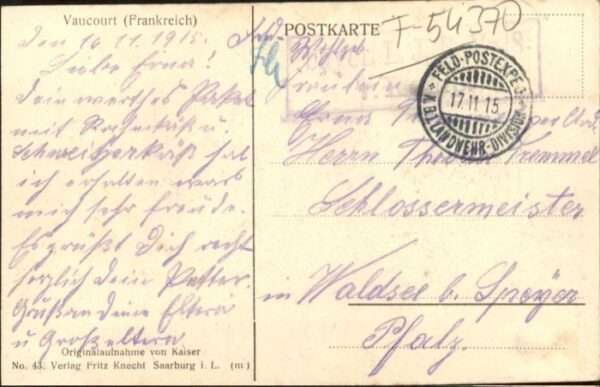 Vaucourt (Frankreich)
Den 16 11. 1915.
Liebe Erna!
Dein werthes Paket
mit Rahmkäß u.
Schweizerkäß hab
ich erhalten was
mich sehr freude.
Es grüßt Dich recht
herzlich dein Petter.
Gruß an deine Eltern
u Großeltern
Originalaufnahme von Kaiser
No. 43. Verlag Fritz Knecht Saarburg i. L. (m)
POSTKARTE
F-54370
FELD-POSTEXPED.
17.11.15
LANDWEHR-DIVISION
Wohlgeb
Fräulein
Erna
Herrn Kremmel
Schlossermeister
in Waldsee b. Speyer
Pfalz.